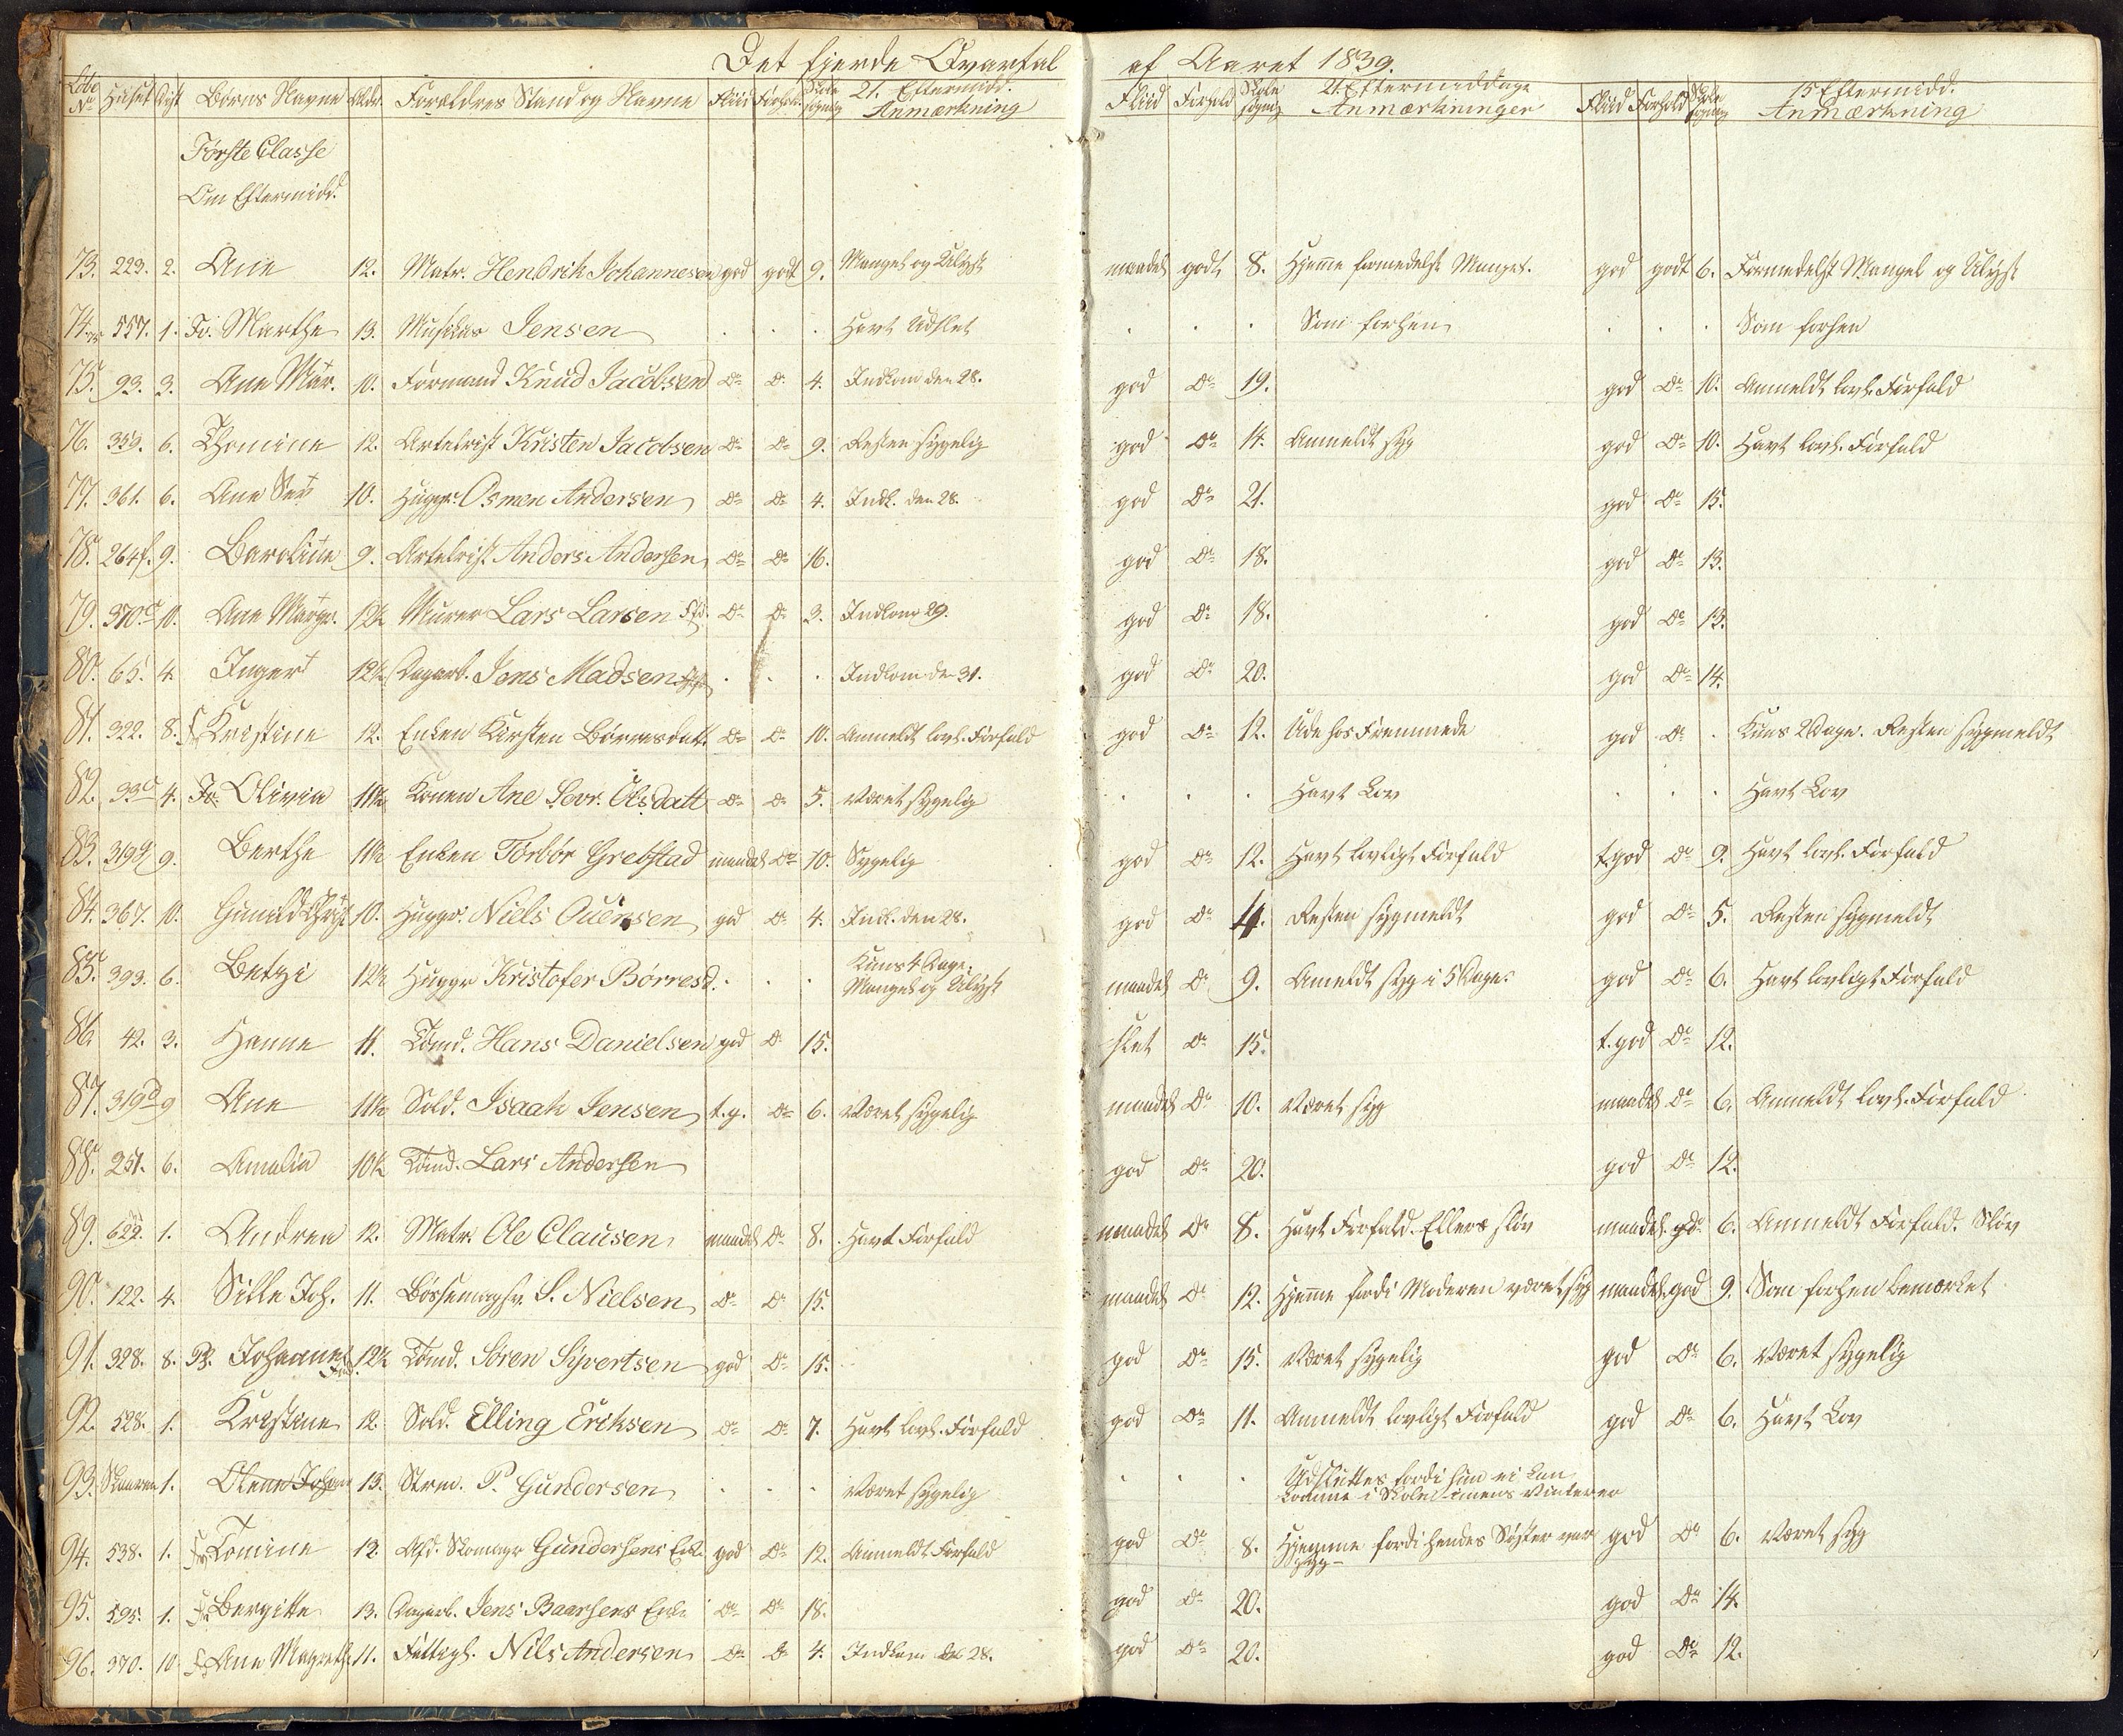 Det fjerde Qvartal af Aaret 1839.
Löbe No Huset Dist Börns Navne Alder Forældres Stand og Navne Fliid Forhold Skole søgning 21. Eftermidd. Anmærkning Fliid Forhold Skole søgning 21 Eftermiddage Anmærkninger Fliid Forhold Skole søgning 15 Eftermidd. Anmærkning
Første Classe
Om Eftermidd.
73. 223. 2. Ane 12. Matr. Hendrik Johannesen god godt 9. Mangel og Ulyst maadel godt 8. Hjemme formedelst Mangel. god godt 6. Formedelst Mangel og Ulyst
74. 557. 1. Fr. Marthe 13. Musicus Jensen . . . Havt Udslet . . . Som forhen . . . Som forhen
75. 93. 3. Ane Mar. 10. Formand Knud Jacobsen do do 4. Indkom den 28. god do 19. god do 10. Anmeldt lovl. Forfald
76. 359. 6. Thomine 12. Artelrist Kristen Jacobsen do do 9. Resten sygelig god do 14. Anmeldt syg god do 10. Havt lovl. Forfald
77. 361. 6. Ane Ser 10. Huggr. Osmen Andersen do do 4. Indk. den 28. god do 21. god do 15.
78. 264f. 9. Caroline 9. Artelrist. Anders Andersen do do 16. god do 18. god do 13.
79. 370c 10. Ane Margr. 12½ Murer Lars Larsen do do 3. Indkom 29. god do 18. god do 13.
80. 65. 4. Inger 12½ Dagarb. Jens Madsen . . . Indkom den 31. god do 20. god do 14.
81. 322. 8. Fr Kristine 12. Enken Kirsten Börresdatt. do do 10. Anmeldt lovl. Forfald god do 12. Ude hos Fremmede god do . Kuns 2 Dage. Resten sygmeldt
82. 93c 4. Fr. Olivia 11½ Konen Ane Sovr. Olsdatt do do 5. Været sygelig . . . Havt Lov . . . Havt Lov
83. 319g 9. Berthe 11½ Enken Torbör Grebstad maadel do 10. Sygelig god do 12. Havt lovligt Forfald t.god do 9. Havt lovl. Forfald
84. 367. 10. Gunild Christ 10. Huggr. Niels Ouensen god do 4. Indk. den 28. god do 4. Resten sygmeldt god do 5. Resten sygmeldt
85. 393. 6. Betzi 12½ Huggr Kristofer Börresd. . . . Kuns 4 Dage. Mangel og Ulyst maadel do 9. Anmeldt syg i 5 Dage. god do 6. Havt lovligt Forfald
86. 42. 3. Hanne 11. Tömd. Hans Danielsen god do 15. slet do 15. t.god do 12.
87. 319d 9 Ane 11½ Sold. Isaak Jensen t.g. do 6. Været sygelig maadel do 10. Været syg maadel do 6. Anmeldt lovl. Forfald
88. 251. 6. Amalia 10½ Tömd. Lars Andersen god do 20. god do 12.
89. 622. 1. Andrea 12. Matr. Ole Clausen maadel do 8. Havt Forfald maadel do 8. Havt Forfald. Ellers sløv maadel. gdo 6. Anmeldt Forfald. Sløv
90. 122. 4. Sille Joh. 11. Börssemagsv. S. Nielsen do do 15. maadel do 12. Hjemme fordi Moderen været syg maadel. god 9. Som forhen bemærket
91. 328. 8. Johanne 12½ Tömd. Sören Syvertsen god do 15. god do 15. Været sygelig god do 6. Været sygelig
92. 528. 1. Kristine 12. Sold. Elling Eriksen do do 7. Havt lovl. Forfald god do 11. Anmeldt lovligt Forfald god do 6. Havt Lov
93. Skauren 1. Olene Johanne 13. Strm. P. Gundersen . . . Været sygelig . . . Udsluttes fordi hun ei kan komme i Skolen imens Vinteren
94. 538. 1. Fr Tomine 12. Afd. Skomagr Gundersens Enke god do 12. Anmeldt Forfald god do 8. Hjemme fordi hendes Søster var syg god do 6. Været syg
95. 595. 1. Fr Bergitte 13. Dagarb. Jens Baarsens Enke do do 18. god do 20. god do 14.
96. 370. 10 Fr Ane Magrethe 11. Fattigl. Nils Andersen do do 4. Indkom den 28. god do 20. god do 12.